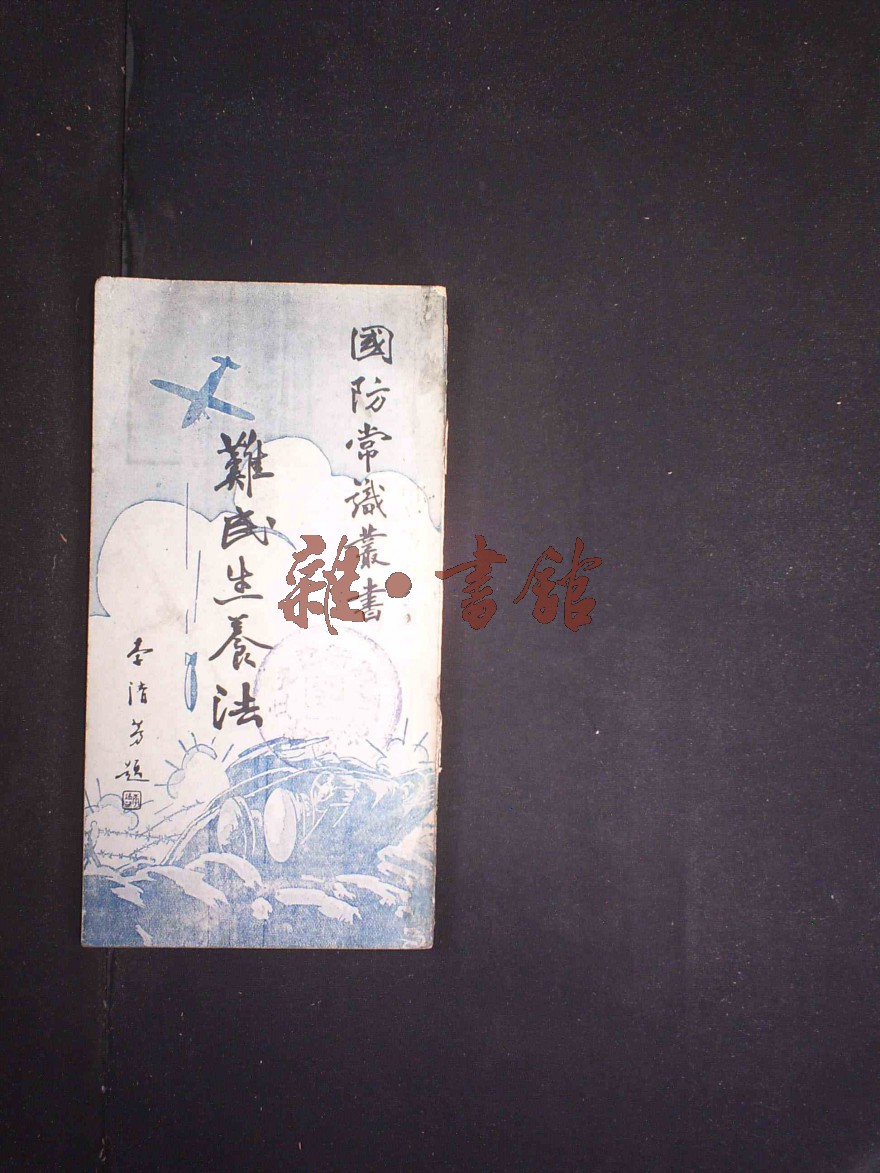 國防常識叢書
難民生養法
李清芳題
雜·書館